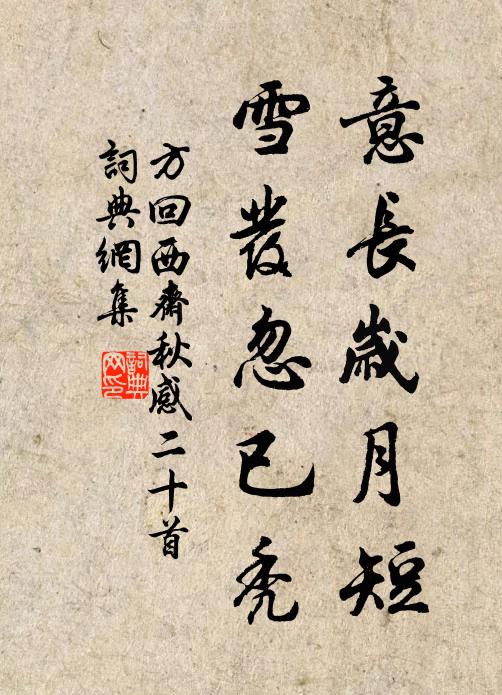 意長歲月短
雪發忽已禿
方回西齋秋感二十首
詞典網集
詞典網印